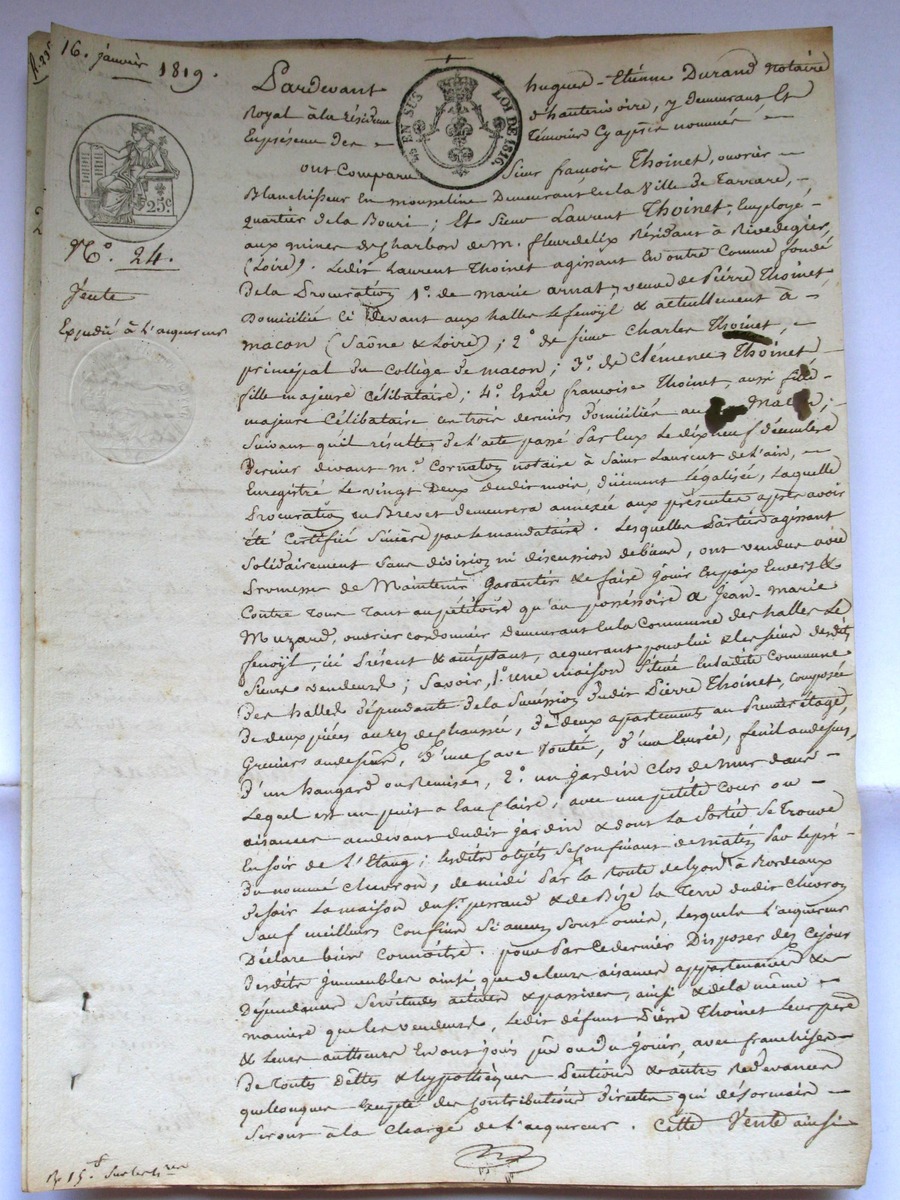 16. janvier 1819.
EN SUS LOI DE 1816.
25c
N.º 24.
Vente
Expédié à l'acquereur
Pardevant hugues-Etienne Durand notaire
Royal à la résidence d'hauterivoire, y demeurant Et
En présence des témoins Cy après nommés
ont Comparu Sieur françois Thoinet, ouvrier
Blanchisseur En mousseline Demeurant En la Ville de Tarrare,
quartier de la Bouri; Et Sieur Laurent Thoinet, Employé
aux mines de Charbon de m. fleurdelix Résidant à Rivedegier
(Loire). Ledit Laurent Thoinet agissant En outre Comme fondé
De la Procuration 1.º de marie arnat, veuve de Pierre Thoinet
Domiciliée Ci devant aux halles Lefenoÿl & actuellement à
macon (Saône & Loire); 2.º de sieur Charles Thoinet,
principal du Collège de macon; 3.º de Clémence Thoinet
fille majeure Célibataire; 4.º Et de françoise Thoinet, aussi fille
majeure Célibataire les trois derniers domiciliés au Macon;
Suivant qu'il résulte de l'acte passé par Eux Le dix neuf décembre
Dernier devant m.e Cornaton notaire à Saint Laurent de l'ain,
Enregistré Le vingt deux dudit mois, duement Légalisée, Laquelle
Procuration En Brevet demeurera annexée aux présentes après avoir
été Certifiée Sincère par le mandataire. Lesquelles Parties agissant
Solidairement Sans division ni discussion de biens, ont vendu avec
Promesse de Maintenir garantir & faire jouir En paix Envers &
Contre tous tant au pétitoire qu'au possessoire à Jean-marie
Muzard, ouvrier cordonnier demeurant En la Commune des halles Le
fenoÿl, ici Présent & acceptant, acquerant pour lui & les siens desdits
Sieurs vendeurs; Savoir, 1.º une maison Située En ladite Commune
Des halles dépendante de la Succession dudit Pierre Thoinet, composée
De deux pièces au rez de chaussée, de deux apartements au Premier étage,
Greniers au dessus, d'une cave Voutée, d'une Ecurie, fenil au dessus,
D'un hangard ou Remises, 2.º un jardin Clos de murs dans
Lequel est un puit a Eau Claire, avec une petite Cour ou
aisances au devant dudit jardin & dont la Sortie Se trouve
En soir de L'Etang; lesdits objets Se confinant de matin Par le pré
Du nommé Chevron, de midi Par la Route de Lyon à Bordeaux
De soir La maison du Sr. perrand & de Bize la Terre dudit Chevron
Sauf meilleurs Confins Si aucuns Sont omis, Lesquels L'acquereur
Déclare bien Connoitre. pour Par ce dernier Disposer dès Ce jour
Desdits Immeubles ainsi que de leurs aisances appartenances &
Dépendances Servitudes actives & passives, ainsi & de la même
manière que les vendeurs, Ledit défunt Pierre Thoinet Leur père
& Leurs autheurs En ont jouis pû ou dû jouir, avec franchise
De toutes dettes & hypothèques Pentions & autres Redevances
quelconques Excepté des Contributions directes qui désormais
Seront à la Charge de l'acquereur. Cette Vente ainsi